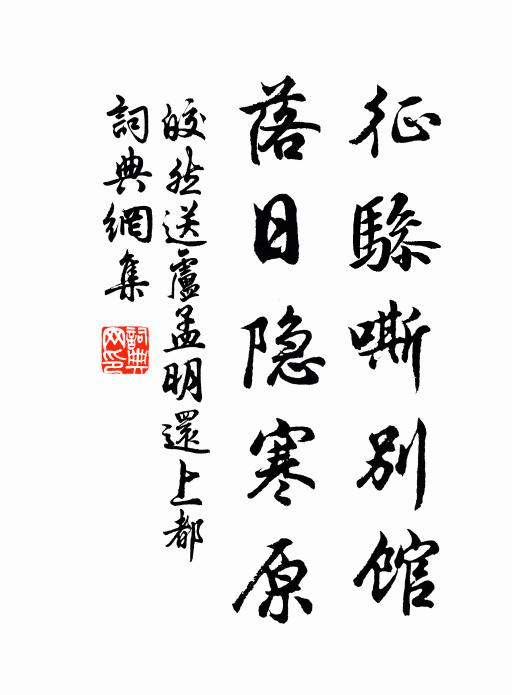 征驂嘶別館
落日隐寒原
皎然送盧孟明還上都
詞典網集
詞典網印